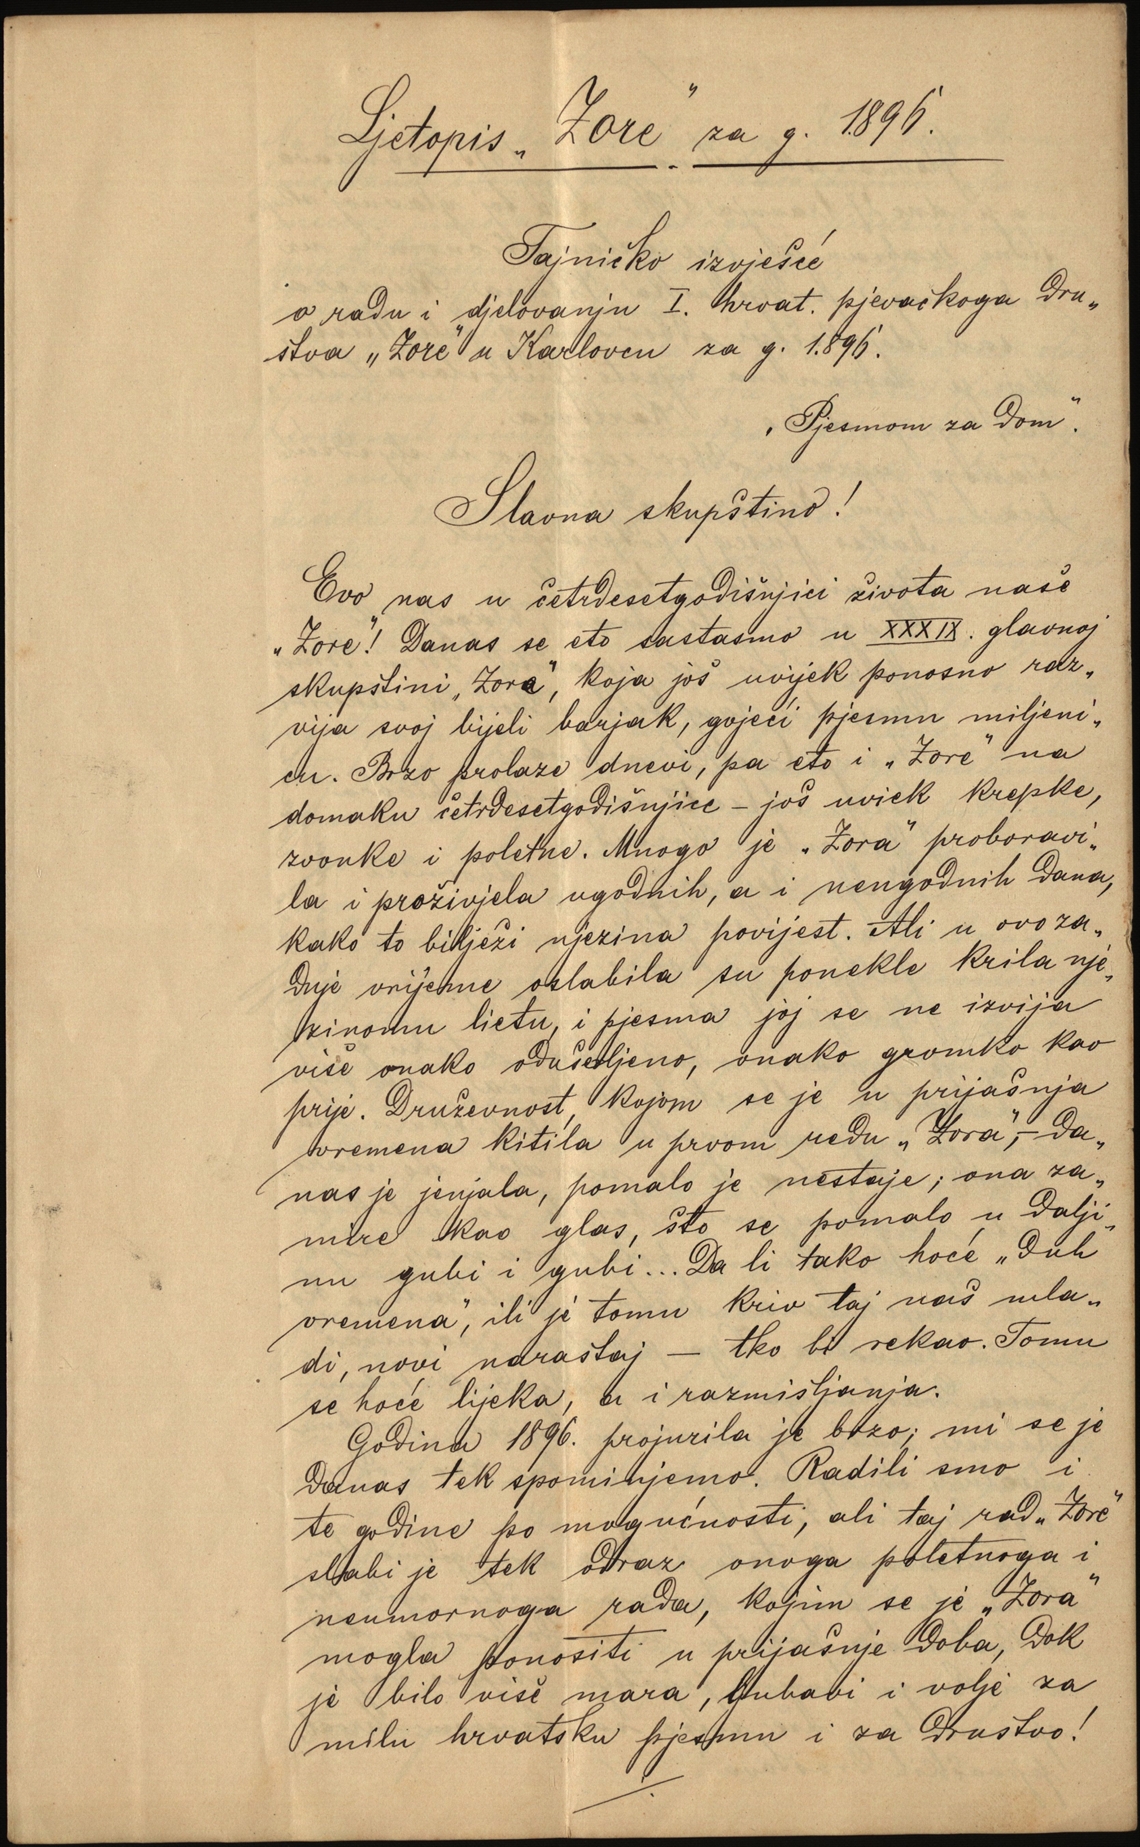 Ljetopis „Zore" za g. 1896.
Tajničko izvješće
o radu i djelovanju I. hrvat. pjevačkoga dru„
štva „Zore" u Karlovcu za g. 1.896.
„Pjesmom za dom".
Slavna skupštino!
Evo nas u četrdesetgodišnjici života naše
„Zore"! Danas se eto sastasmo u XXXIX. glavnoj
skupštini „Zora", koja još uvijek ponosno raz„
vija svoj bijeli barjak, gojeći pjesmu miljeni„
cu. Brzo prolaze dnevi, pa eto i „Zore" na
domaku četrdesetgodišnjice – još uviek krepke,
zvonke i poletne. Mnogo je „Zora" proboravi„
la i proživjela ugodnih, a i neugodnih dana,
kako to bilježi njezina povijest. Ali u ovo za„
dnje vrijeme oslabila su ponekle krila nje„
zinomu lietu, i pjesma joj se ne izvija
više onako oduševljeno, onako gromko kao
prije. Druževnost, kojom se je u prijašnja
vremena kitila u prvom redu „Zora", – da„
nas je jenjala, pomalo je nestaje; ona za„
mire kao glas, što se pomalo u dalji„
nu gubi i gubi... Da li tako hoće „duh
vremena", ili je tomu kriv taj naš mla„
di, novi naraštaj — tko bi rekao. Tomu
se hoće lijeka, a i razmišljanja.
Godina 1896. projurila je brzo; mi se je
danas tek spominjemo. Radili smo i
te godine po mogućnosti, ali taj rad „Zore"
slabi je tek odraz onoga poletnoga i
neumornoga rada, kojim se je „Zora"
mogla ponositi u prijašnje doba, dok
je bilo više mara, ljubavi i volje za
milu hrvatsku pjesmu i za društvo!
./.